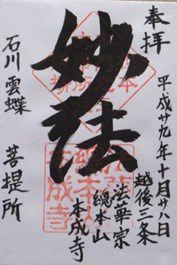 奉拝
平成廿九年十月廿八日
越後三条
法華宗
総本山
本成寺
妙法
石川雲蝶
菩提所